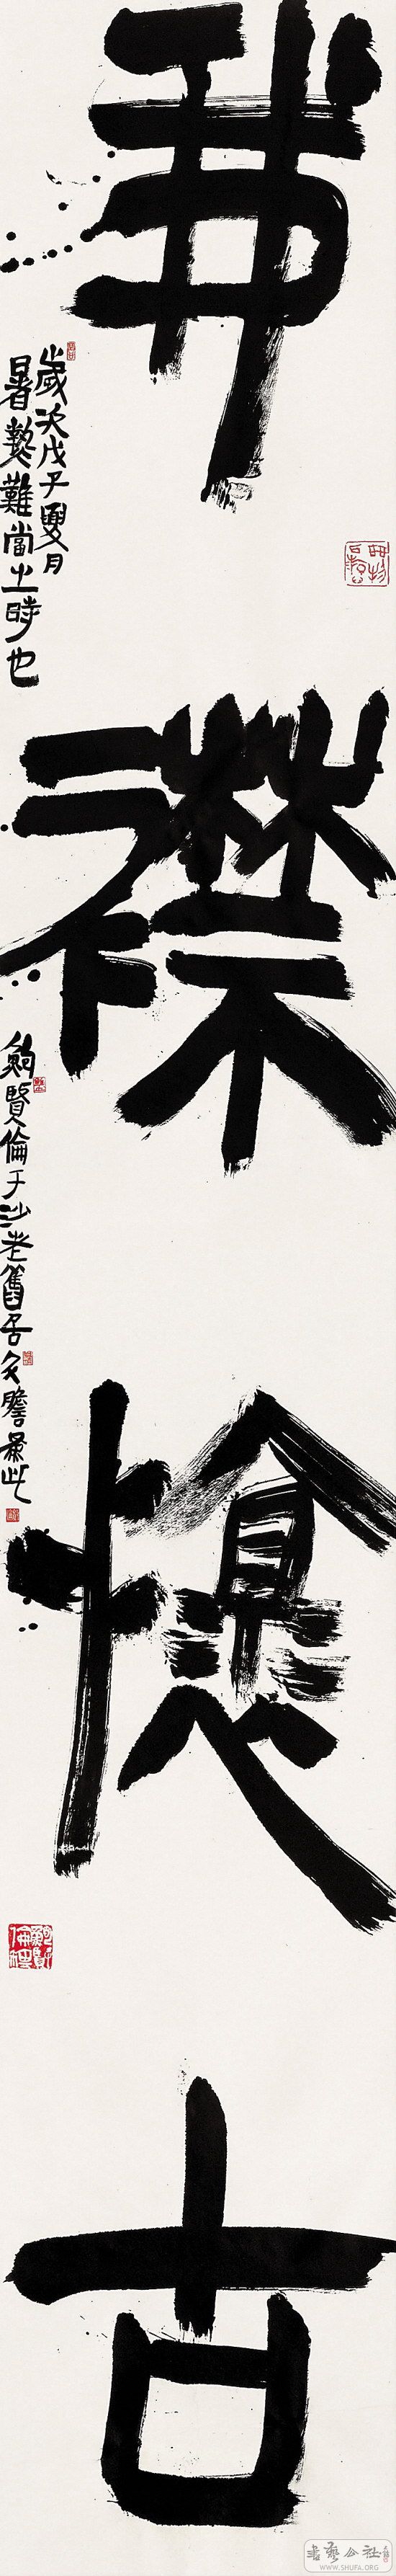 我襟懷古
歲次戊子夏月
暑熱難當之時也
鮑賢倫于沙老舊居
鮑賢倫
書藝公社
WWW.SHUFA.ORG